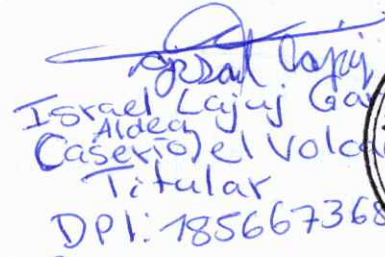 Israel Lajuj Ga
Aldea
Caserío el Volca
Titular
DPI: 185667368